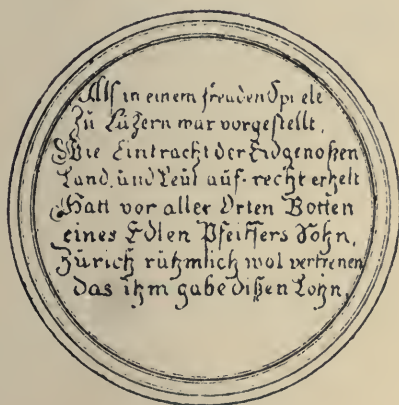 Alß in einem freuden Spiele
Zu Luzern war vorgestellt,
Wie Eintracht der Eidgenoßen
Land und Leut auf-recht erhelt
Hatt vor aller Orten Botten
eines Edlen Pfeiffers Sohn,
Zürich rühmlich wol vertretten
das ihm gabe dißen Lohn,